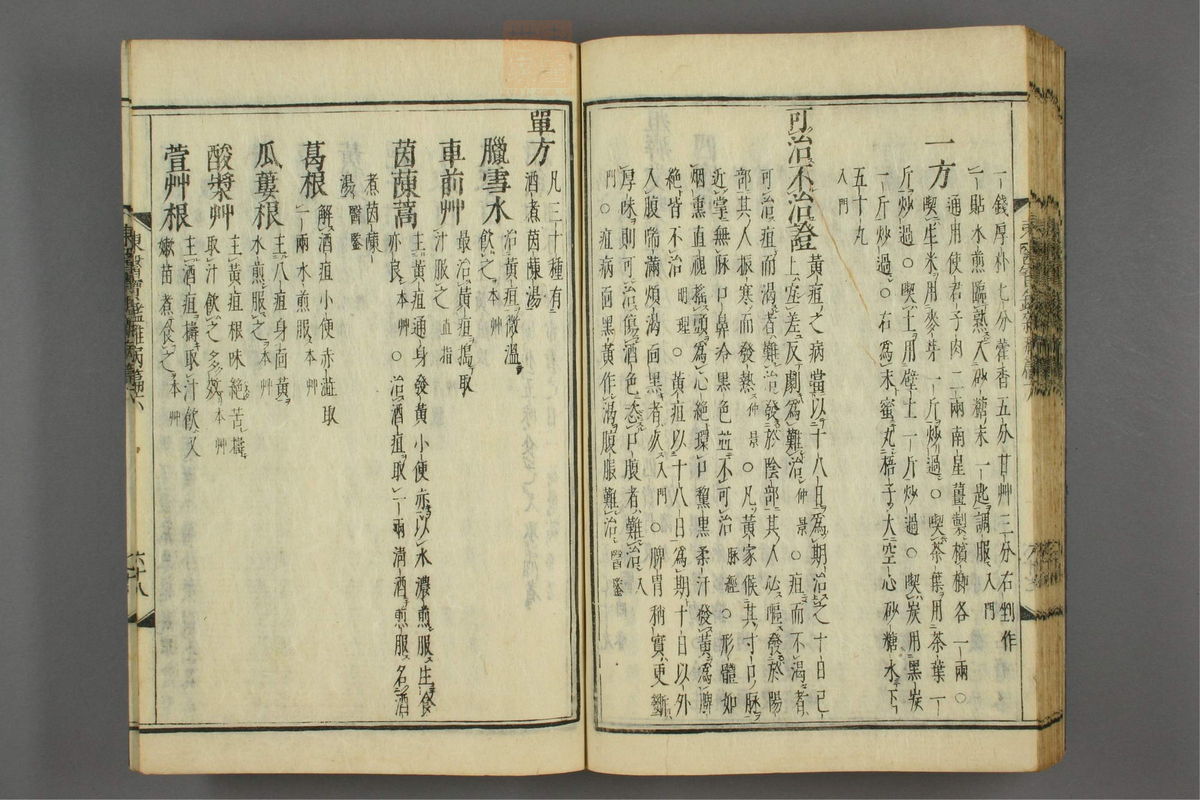 一錢厚朴七分藿香五分甘艸三分右剉作
一貼水煎臨熟入砂糖末一匙調服入門
一方通用使君子肉二兩南星薑製檳榔各一兩○
喫生米用麥芽一斤炒過○喫茶葉用茶葉一
斤炒過○喫土用壁土一斤炒過○喫炭用黑炭
一斤炒過○右爲末蜜丸梧子大空心砂糖水下
五十丸
入門
可治不治證黃疸之病當以十八日爲期治之十日已
上宜差反劇爲難治仲景○疸而不渴者
可治疸而渴者難治發於陰部其人必嘔發於陽
部其人振寒而發熱仲景○凡黃家候其寸口脉
近掌無脉口鼻冷黑色並不可治脉經○形體如
烟熏直視搖頭爲心絶環口黧黑柔汗發黃爲脾
絶皆不治明理○黃疸以十八日爲期十日以外
入腹喘滿煩渴面黑者死入門○脾胃稍實更斷
厚味則可治傷酒色恣口腹者難治入
門○疸病面黑黃作渴腹脹難治醫鑒
單方凡三十種有
酒煮茵蔯湯
臘雪水治黃疸微溫
飮之本艸
車前艸最治黃疸搗取
汁服之直指
茵蔯蒿主黃疸通身發黃小便赤以水濃煎服生食
亦良本艸○治酒疸取一兩淸酒煎服名酒
煮茵蔯
湯醫鑒
葛根解酒疸小便赤澁取
一兩水煎服本艸
瓜蔞根主八疸身面黃
水煎服之本艸
酸漿艸主黃疸根味絶苦擣
取汁飮之多效本艸
萱艸根主酒疸擣取汁飮又
嫩苗煮食之本艸
東醫寶鑑雜病篇卷六
六十八